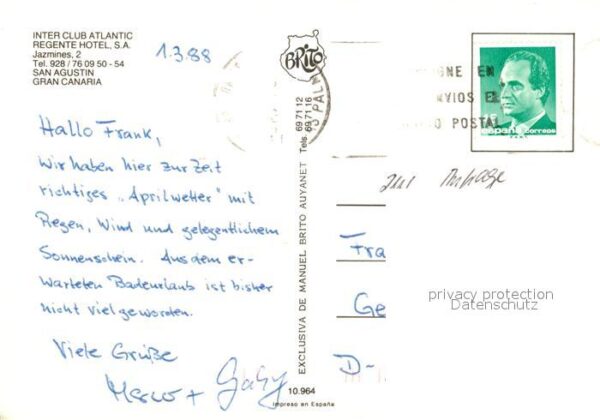 INTER CLUB ATLANTIC
REGENTE HOTEL, S.A.
Jazmines, 2
Tel. 928 / 76 09 50 - 54
SAN AGUSTIN
GRAN CANARIA
1.3.88
BRITO
Hallo Frank,
Wir haben hier zur Zeit
richtiges „Aprilwetter" mit
Regen, Wind und gelegentlichem
Sonnenschein. Aus dem er-
warteten Badeurlaub ist bisher
nicht viel geworden.
Viele Grüße
+ Gaby
EXCLUSIVA DE MANUEL BRITO AUYANET Tels. 69 71 12
69 71 16
10.964
Impreso en España
GNE EN
NVIOS E
O POSTAL
PALM
España correos
Fra
Ge
D-
privacy protection
Datenschutz